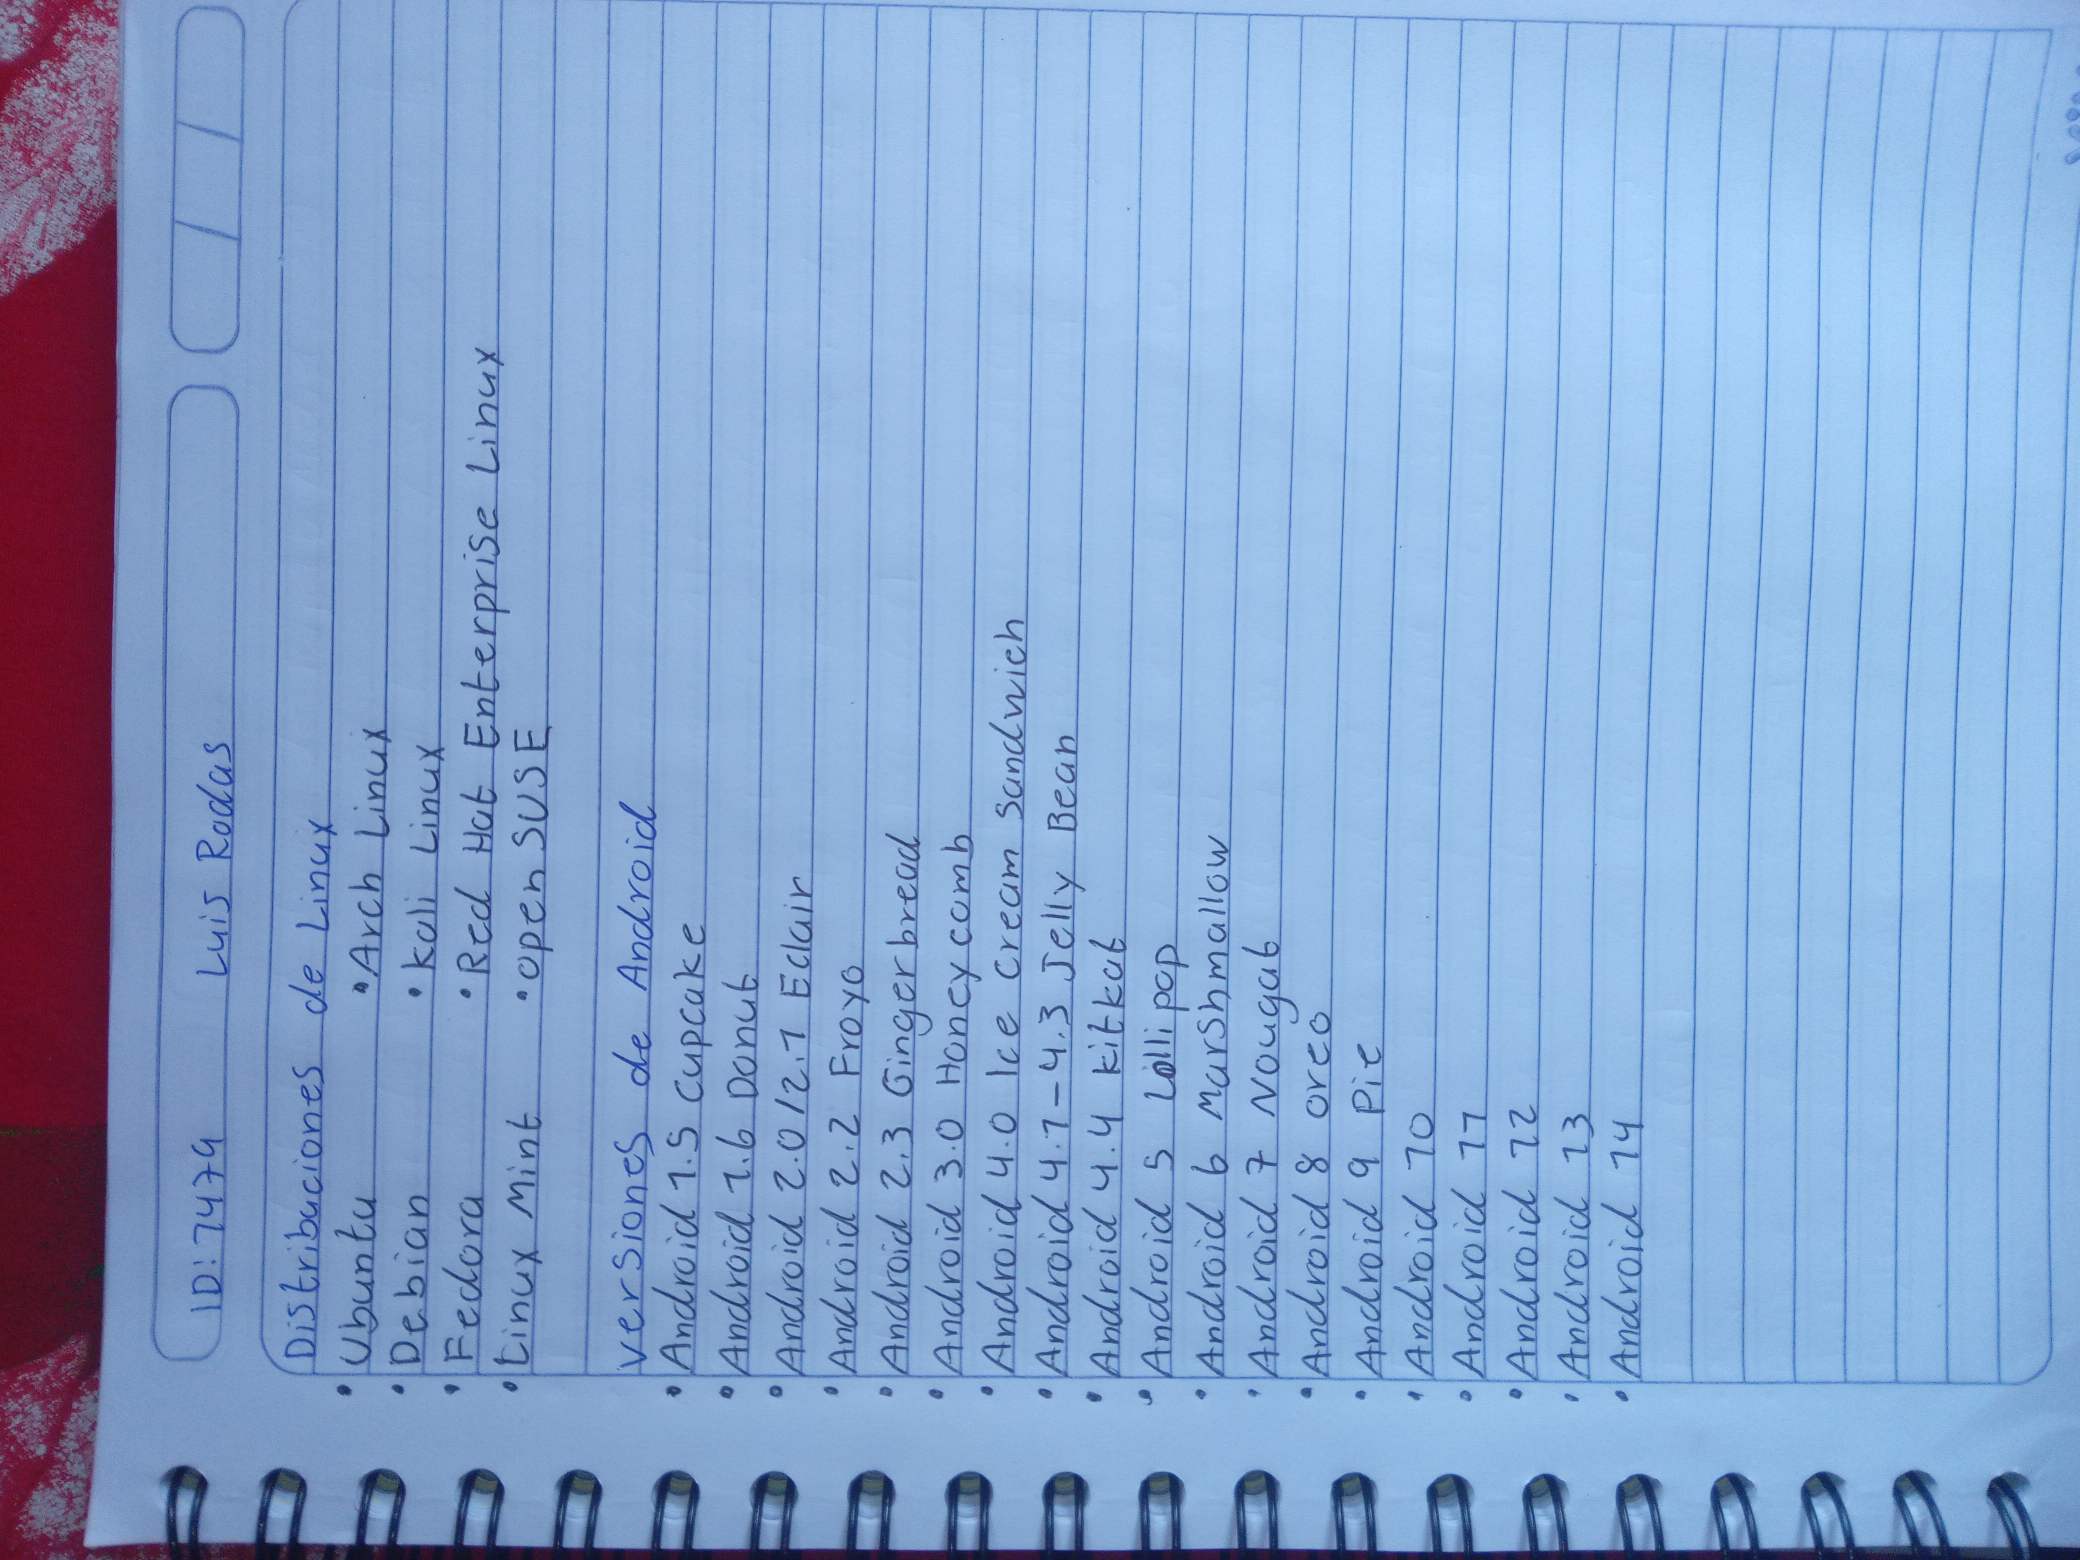 ID: 7479 Luis Rodas
Distribuciones de Linux
• Ubuntu • Arch Linux
• Debian • Kali Linux
• Fedora • Red Hat Enterprise Linux
• Linux Mint • open SUSE
Versiones de Android
• Android 1.5 Cupcake
• Android 1.6 Donut
• Android 2.0/2.1 Eclair
• Android 2.2 Froyo
• Android 2.3 Gingerbread
• Android 3.0 Honeycomb
• Android 4.0 Ice Cream Sandwich
• Android 4.1-4.3 Jelly Bean
• Android 4.4 kitkat
• Android 5 Lollipop
• Android 6 Marshmallow
• Android 7 Nougat
• Android 8 Oreo
• Android 9 Pie
• Android 10
• Android 11
• Android 12
• Android 13
• Android 14